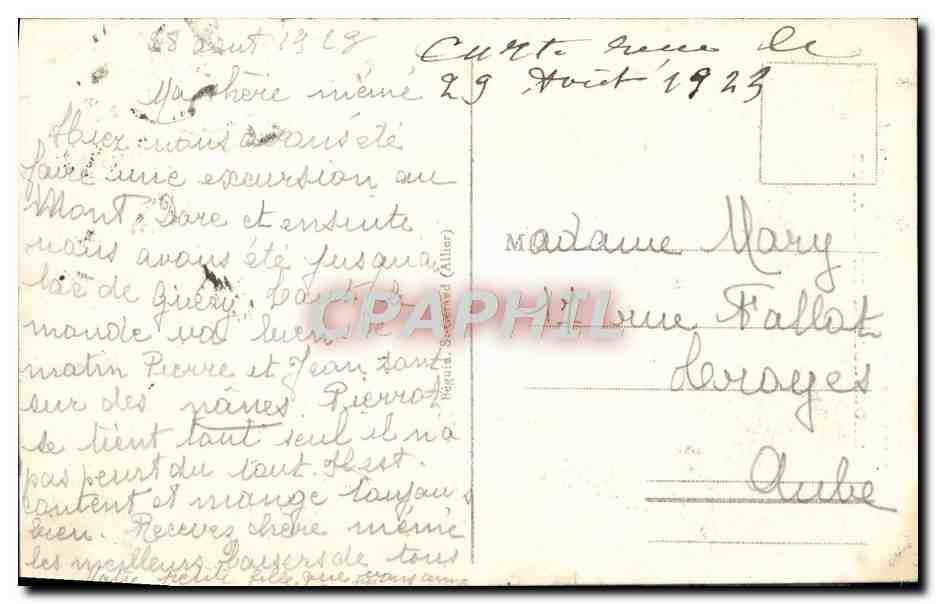 28 aout 1929
Ma chère mémé
Hiez nous avons été
faire une excursion au
Mont. Dore et ensuite
nous avons été jusqu'a
lac de Guéry. tout le
monde va bien ce
matin Pierre et Jean sont
sur des nânes Pierrot
se tient tout seul il n'a
pas peurt du tout. Il est.
content et mange toujous
bien. Recevez chère mémé
les meilleurs baisers de tous
Votre petite fille qui vous aime
Carte reçue le
29 Août 1923
Madame Mary
17 rue Fallot
Troyes
Aube
Béguin, S. Germed (Allier)
CPAPHIL